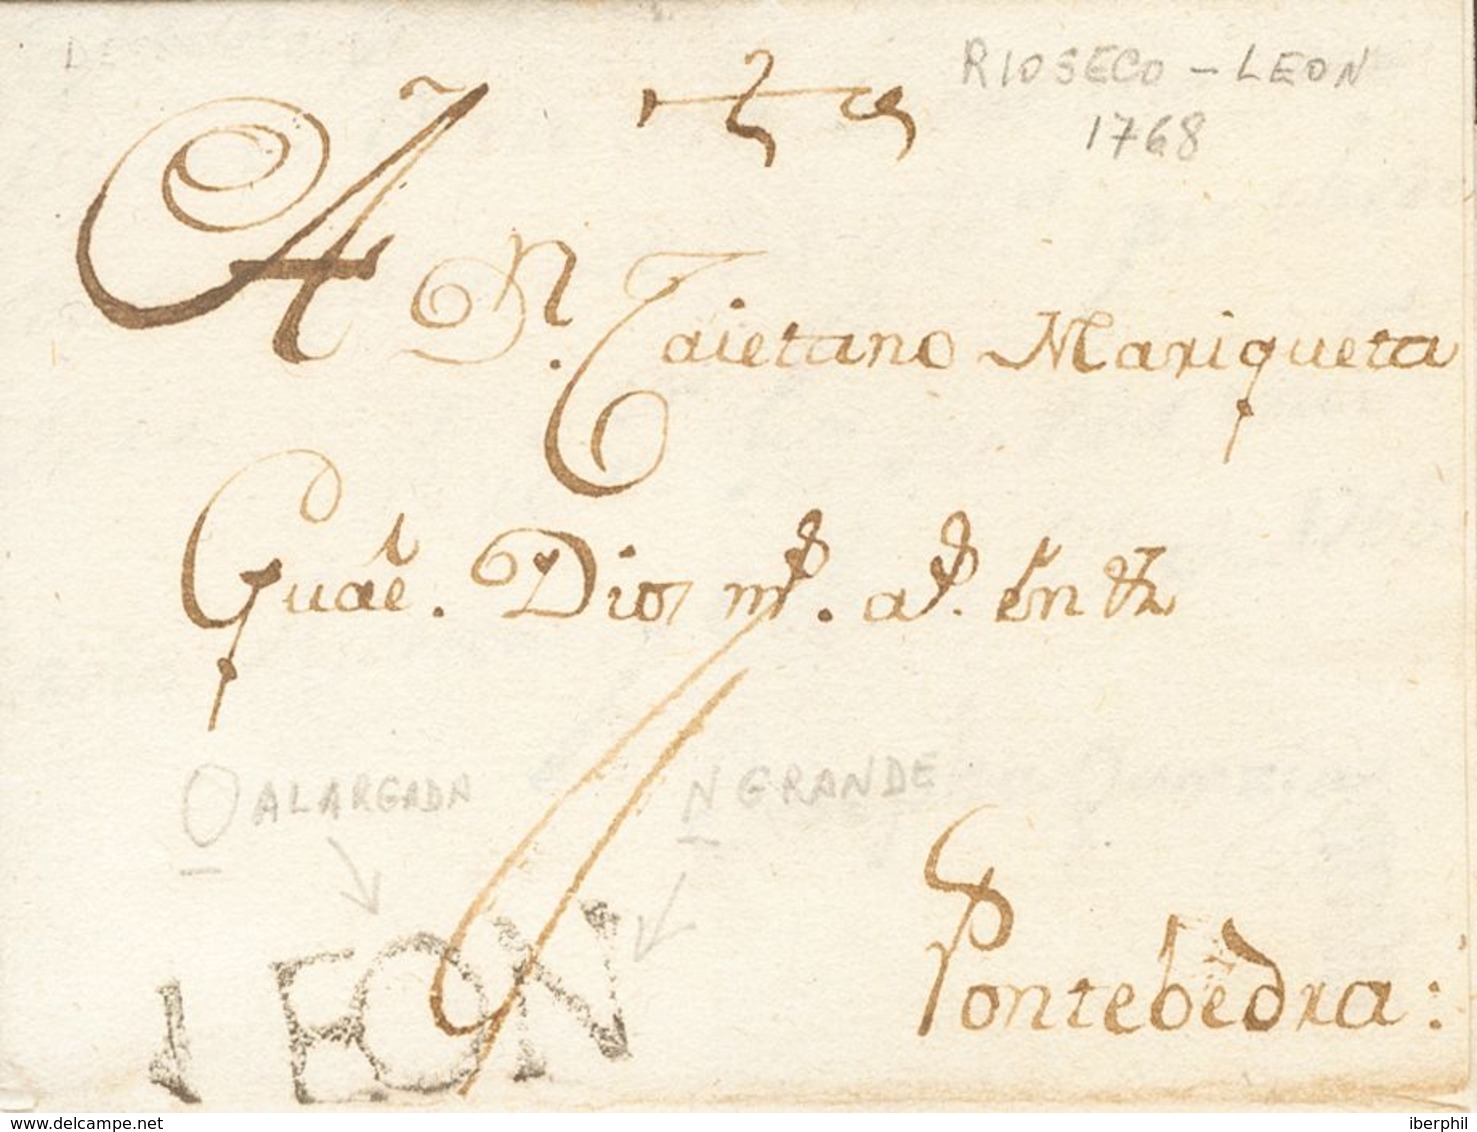 RIOSECO - LEON
1768
A Dn. Caietano Mariqueta
Guãe. Dios ms. as. en
O ALARGADA
N GRANDE
Pontebedra:
LEON
www.delcampe.net
iberphil